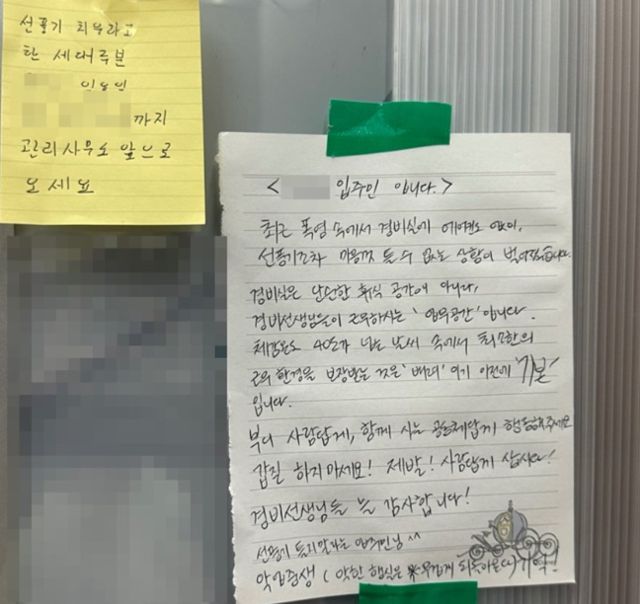 선풍기 치우라고
한 세대주분
까지
관리사무소 앞으로
오세요
< 입주인 입니다.>
최근 폭염 속에서 경비실에 에어컨도 없이,
선풍기조차 마음껏 틀 수 없는 상황이 벌어졌습니다.
경비실은 단순한 휴식 공간이 아니라,
경비선생님들이 근무하시는 '업무공간' 입니다.
체감온도 40도가 넘는 날씨 속에서 최소한의
근무 환경을 보장받는 것은 '배려' 이기 이전에 '기본'
입니다.
부디 사람답게, 함께 사는 공동체답게 행동해주세요
갑질 하지마세요! 제발! 사람답게 삽시다!
경비선생님들 늘 감사합니다!
선풍기 틀지말라는 입주민님 ^^
악인증생 ( 악한 행실은